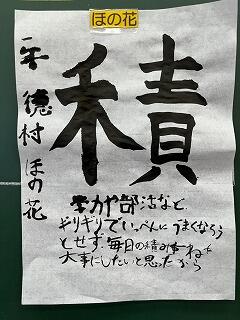 ほの花
積
一年 徳村 ほの花
学力や部活など、
ギリギリでいっぺんにうまくなろう
とせず、毎日の積み重ねを
大事にしたいと思ったから